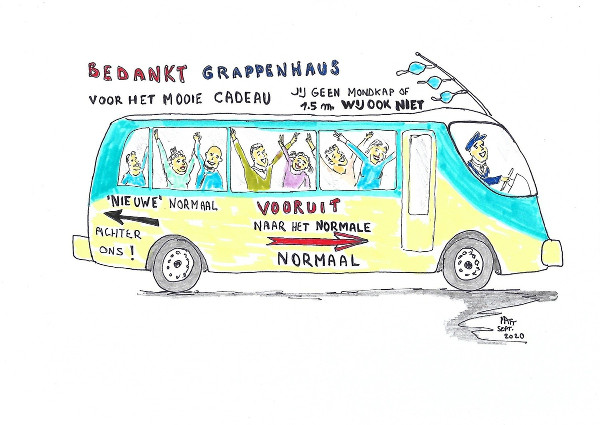 BEDANKT GRAPPENHAUS
VOOR HET MOOIE CADEAU
JIJ GEEN MONDKAP OF
1.5 m. WIJ OOK NIET
'NIEUWE' NORMAAL
ACHTER
ONS!
VOORUIT
NAAR HET NORMALE
NORMAAL
PATT
SEPT.
2020